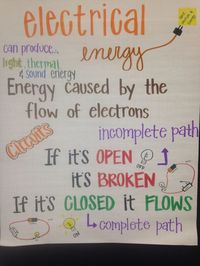 electrical
energy
can produce...
light, thermal
& sound energy
Energy caused by the
flow of electrons
Circuits
incomplete path
If it's OPEN
OFF
it's BROKEN
If it's CLOSED it FLOWS
ON
complete path